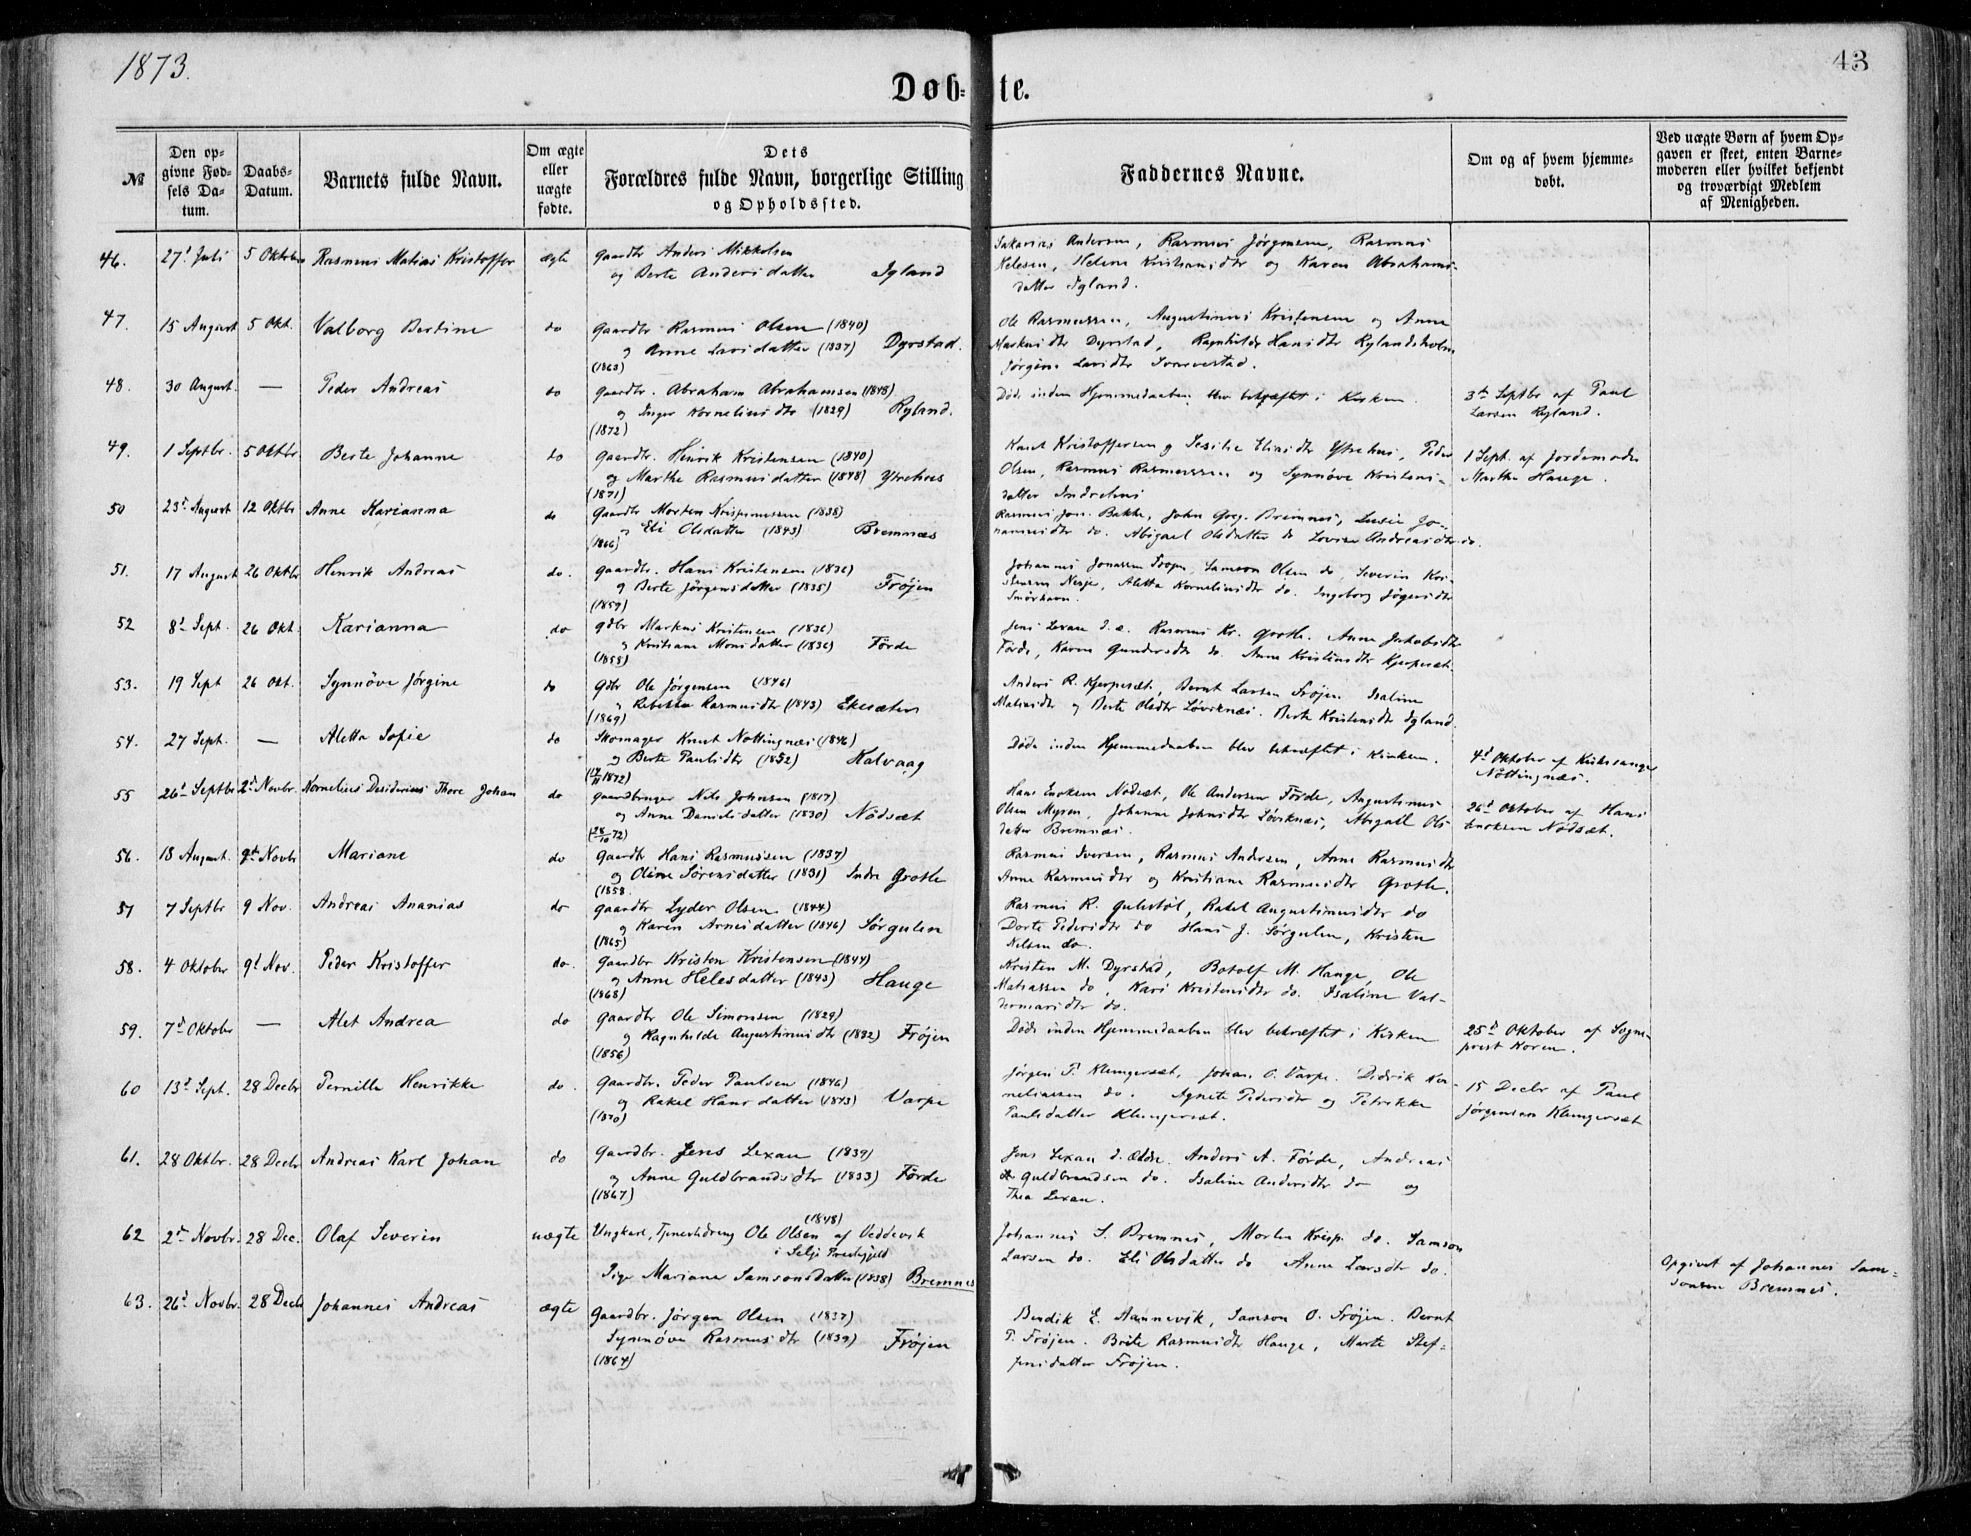 1873.
43
Døb-
te.
№
Den op-
givne Fød-
sels Da-
tum.
Daabs-
Datum.
Barnets fulde Navn.
Om ægte
eller
uægte
fødte.
Dets
Forældres fulde Navn, borgerlige Stilling
og Opholdssted.
Faddernes Navne.
Om og af hvem hjemme-
døbt.
Ved uægte Børn af hvem Op-
gaven er skeet, enten Barne-
moderen eller hvilket bekjendt
og troværdigt Medlem
af Menigheden.
46. 27d Juli 5 Oktober Rasmus Matias Kristoffer ægte
Gaardbr Anders Mikkelsen
og Berte Andersdatter Igland
Sakarias Andersen, Rasmus Jørgensen, Rasmus
Helesen, Helene Kristiansdtr og Karen Abrahams-
datter Igland.
47. 15 August 5 Okt. Valborg Bertine do
Gaardbr Rasmus Olsen (1840)
og Anne Larsdatter (1837) Dyrstad.
(1863)
Ole Rasmussen, Augustinus Kristensen og Anne
Markusdtr Dyrstad, Ragnhilde Hansdtr Rylandsholm
Jørgine Larsdtr
48. 30 August. — Peder Andreas do
Gaardbr. Abraham Abrahamsen (1848)
og Inger Korneliusdtr (1829) Ryland.
(1872)
Døde inden Hjemmedaaben blev bekræftet i Kirken.
3die Septbr af Paul
Larsen Ryland.
49. 1 Septbr. 5 Oktbr Berte Johanne do
Gaardbr. Henrik Kristensen (1840)
og Marthe Rasmusdatter (1848) Ytrehus
(1871)
Knut Kristoffersen og Sesilie Eliasdtr Ytrehus, Peder
Olsen, Rasmus Rasmussen og Synnøve Kristens-
datter Indrehus
1 Sept. af Jordemoder
Marthe Hauge.
50 23d August 12 Oktbr Anne Karianna do
Gaardbr Morten Krispinussen (1838)
og Eli Olsdatter (1843) Bremnæs
(1866)
Rasmus Jon. Bakke, John Greg. Bremnes, Lusie Jo-
hannesdtr do. Abigael Olsdatter do Lovise Andreasdtr do.
51. 17 August 26 Oktbr Henrik Andreas do.
Gaardbr. Hans Kristensen (1836)
og Berte Jørgensdatter (1835) Frøjen
(1859)
Johannes Jonassen Frøjen, Samson Olsen do, Severin Kri-
stensen Nesje, Aletta Korneliusdtr do. Ingeborg Jøgensdtr
Smørhavn.
52 8d Sept. 26 Okt. Karianna do
Gdbr Markus Kristensen (1836)
og Kristiane Monsdatter (1836) Førde
(1858)
Jens Lexau d. æ. Rasmus Kr. Grotle. Anne Jakobsdtr
Førde, Karen Gundersdtr do. Anne Kristensdtr Hjerpesæt.
53. 19 Sept 26 Okt. Synnøve Jørgine do
Gdbr Ole Jørgensen (1846)
og Rebekka Rasmusdtr (1843) Ekesæter
(1869)
Anders R. Hjerpesæt, Bernt Larsen Frøjen Isaline
Matiasdtr og Berte Olsdtr Løviknæs. Berte Kristensdtr Igland.
54. 27 Sept. — Aletta Sofie do
Skomager Knut Nøttingnæs (1846)
og Berte Paulsdtr (1852) Kalvaag
(14/11 1872)
Døde inden Hjemmedaaben blev bekræftet i Kirken.
4d Oktober af Kirkesanger
Nøttingnæs.
55 26d Septbr 2d Novbr. Kornelius Desiderius Thore Johan do
Gaardbruger Nils Johnsen (1817)
og Anne Danielsdatter (1830) Nødsæt
(28/10 72)
Hans Enoksen Nødsæt, Ole Andersen Førde, Augustinus
Olsen Myren, Johanne Johnsdtr Løviknæs, Abigall Ols-
datter Bremnæs.
26d Oktober af Hans
Enoksen Nødsæt.
56. 18 August. 9d Novbr Mariane do
Gaardbr Hans Rasmussen (1837)
og Oline Sørensdatter (1831) Indre Grotle
(1858
Rasmus Iversen, Rasmus Andersen, Anne Rasmusdtr
Anne Rasmusdtr og Kristiane Rasmusdtr Grotle.
57 7 Septbr 9 Nov. Andreas Ananias do
Gaardbr Lyder Olsen (1844)
og Karen Arnesdatter (1846) Sørgulen
(1865)
Rasmus R. Gulestøl, Rakel Augustinusdtr do
Dorte Pedersdtr do Hans J. Sørgulen, Kristen
Nilsen do.
58. 4 Oktober 9d Nov. Peder Kristoffer do.
Gaardbr Kristen Kristensen (1844)
og Anne Helesdatter (1843) Hauge
(1868)
Kristen M. Dyrstad, Botolf M. Hauge, Ole
Matiassen do, Kari Kristensdtr do. Isaline Val-
demarsdtr do.
59. 7d Oktober — Alet Andrea do
Gaardbr Ole Simonsen (1829)
og Ragnhilde Augustinusdtr (1832) Frøjen
(1856)
Døde inden Hjemmedaaben blev bekræftet i Kirken
25d Oktober af Sogne-
prest Koren.
60 13d Sept. 28 Decbr Pernille Henrikke do.
Gaardbr. Peder Paulsen (1846)
og Rakel Hansdatter (1843) Varpe
(1870)
Jørgen P. Klungersæt, Johan O. Varpe. Didrik Kor-
neliussen do. Agnete Pedersdtr og Petrikke
Paulsdatter Klungersæt.
15 Decbr af Paul
Jørgensen Klungersæt
61. 28 Oktbr. 28 Decbr Andreas Karl Johan do
Gaardbr. Jens Lexau (1839)
og Anne Guldbrandsdtr (1833) Førde
(1867)
Jens Lexau d. Ældre. Anders A. Førde, Andreas
Guldbrandsen do. Isaline Andersdtr do og
Thea Lexau.
62 2d Novbr. 28 Dec. Olaf Severin uægte
(1848)
Ungkarl, Tjenestdreng Ole Olsen af Veddevik
i Selje Prestegjeld
Pige Mariane Samsonsdatter (1838) Bremnes
Johannes S. Bremnes, Morten Krisp. do. Samson
Larsen do. Eli Olsdatter do Anne Larsdtr do.
Opgivet af Johannes Sam-
sonsen Bremnes.
63. 26d Novbr. 28 Decbr Johannes Andreas ægte
Gaardbr. Jørgen Olsen (1837)
Synnøve Rasmusdtr (1839) Frøjen
(1864)
Bendik E. Hannevik, Samson O. Frøjen. Bernt
P. Frøjen. Brite Rasmusdtr Hauge, Marte Stef-
fensdatter Frøjen.